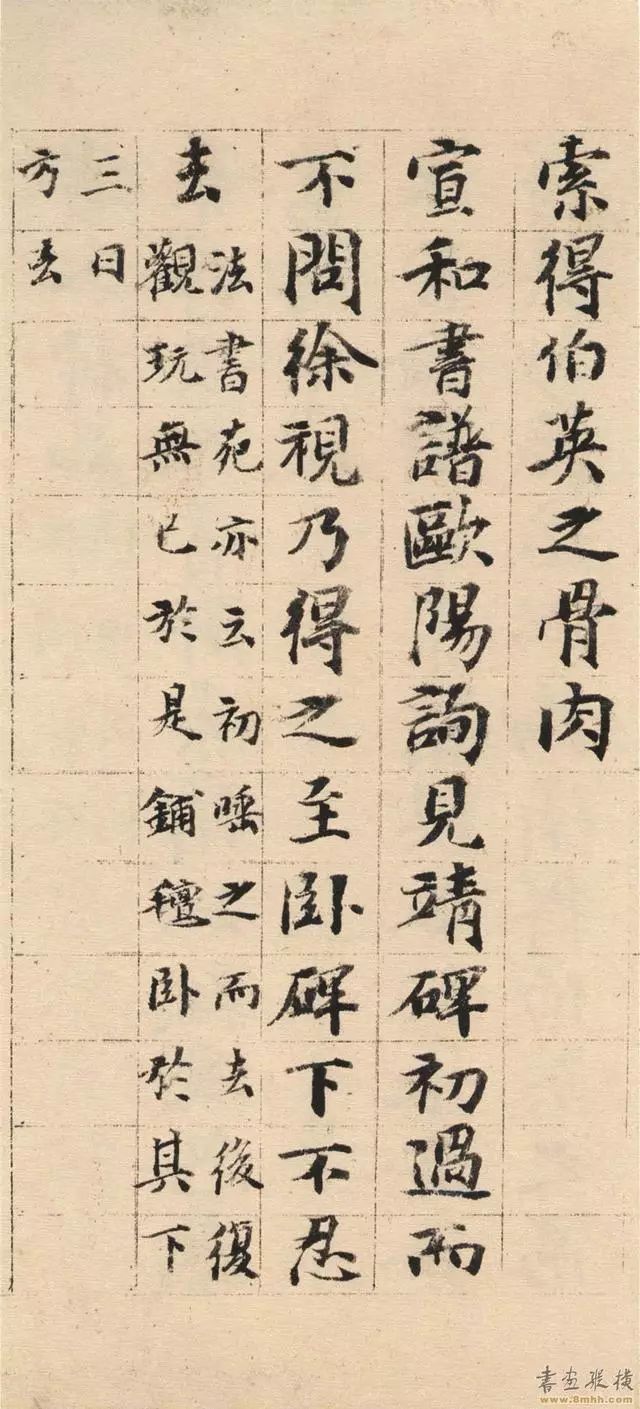 索得伯英之骨肉
宣和書譜歐陽詢見靖碑初過而
不問徐視乃得之至卧碑下不忍
去
法書苑亦云初唾之而去後復
觀玩無已於是鋪氊卧於其下
三日
方去
書畫縱橫
www.8mhh.com